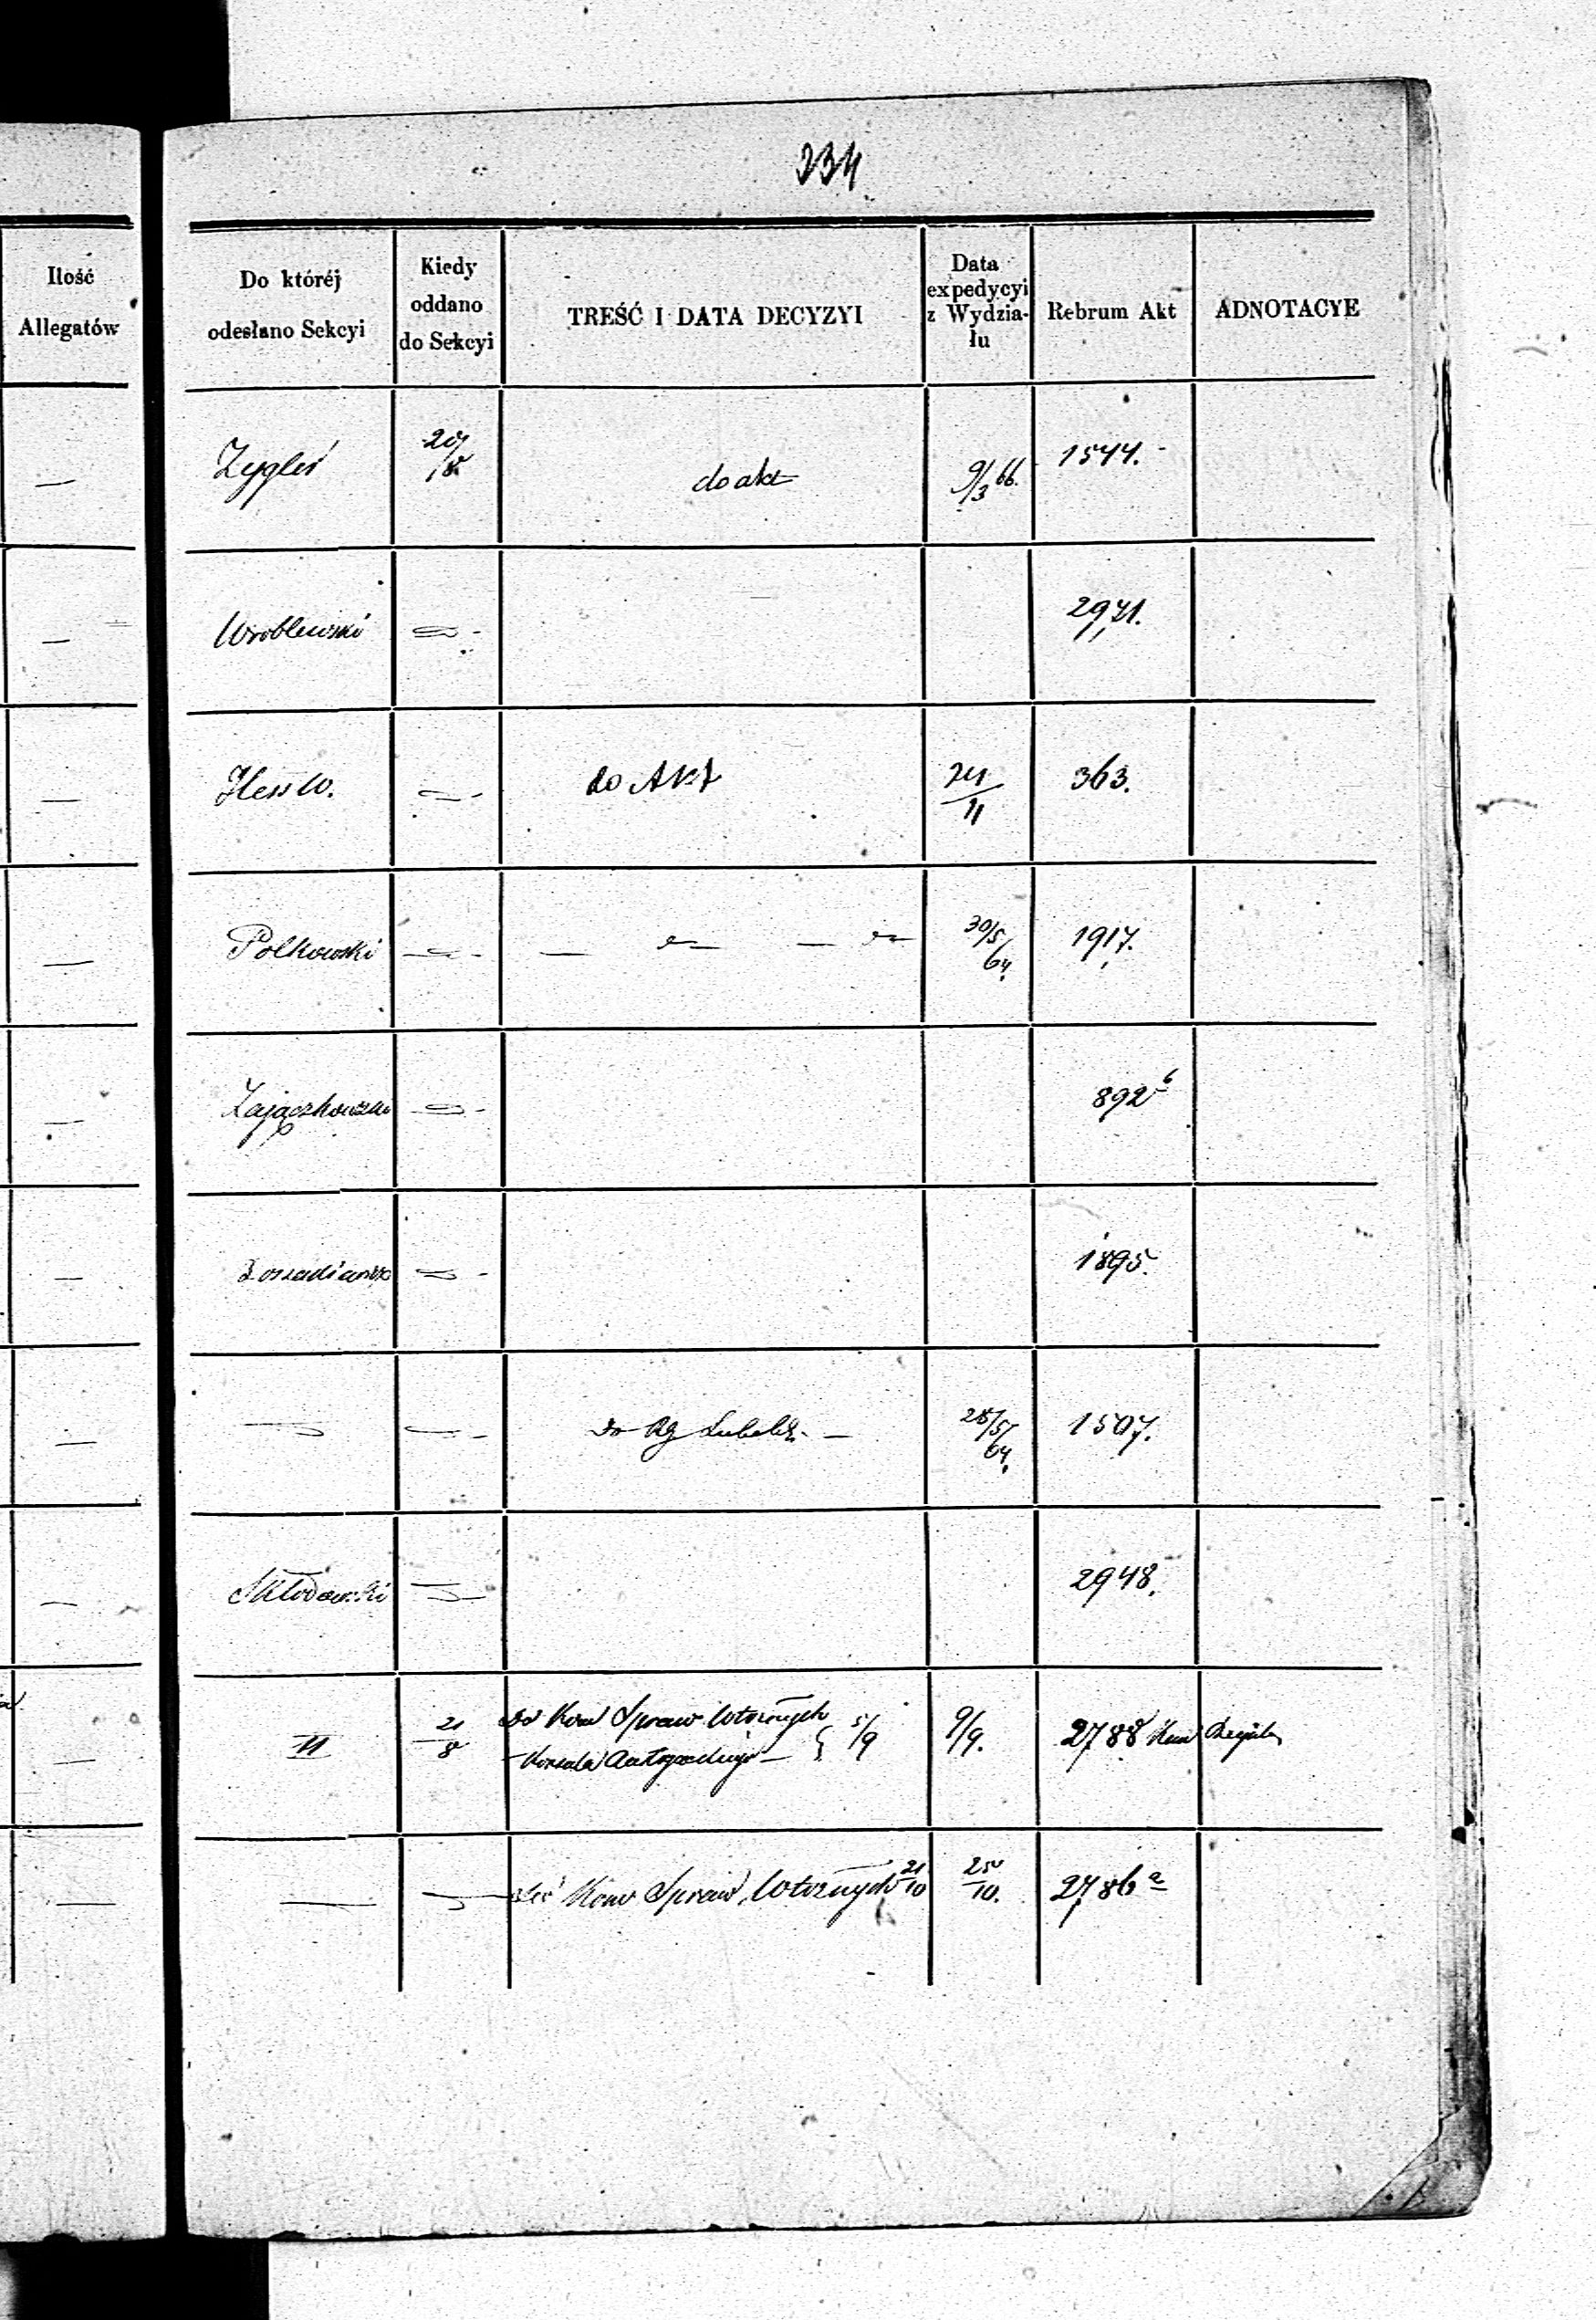 234
Ilość
Allegatów
Do któréj
odesłano Sekcyi
Kiedy
oddano
do Sekcyi
TREŚĆ I DATA DECYZYI
Data
expedycyi
z Wydzia-
łu
Rebrum Akt
ADNOTACYE
20/8 do akt 9/3 66. 1544.
Wróblewski 2971.
Hess W. do Akt 24/11 363.
Polkowski 30/5 64 1917.
Zajączkowski 892 b
1895.
28/5 64 1507.
Skłodowski 2948.
II 21/8 Do Kom Spraw Wewnętrznych 5/9 9/9. 2788
Konsula
Kom Spraw Wewnętrznych 21/10 25/10. 2786 a